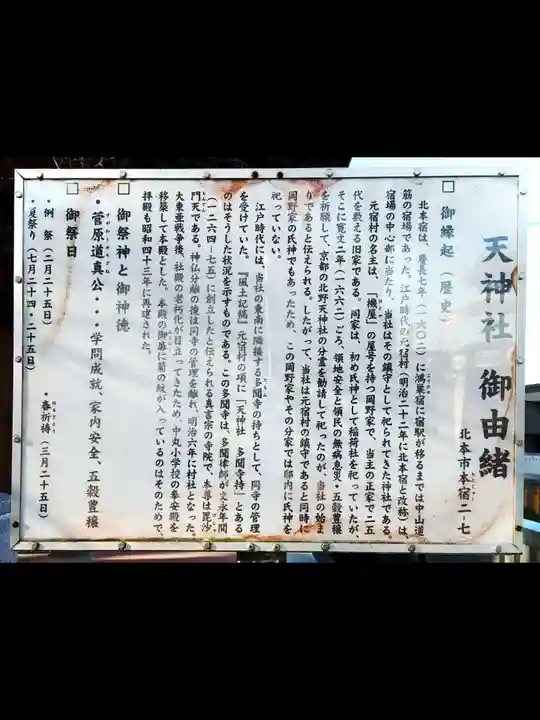 天神社 御由緒
北本市本宿二-七
□御縁起（歴史）
北本宿は、慶長七年（一六〇二）に鴻巣宿に宿駅が移るまでは中山道
筋の宿場であった。江戸時代の元宿村（明治二十二年に北本宿と改称）は、
宿場の中心部に当たり、当社はその鎮守として祀られてきた神社である。
元宿村の名主は、「機屋」の屋号を持つ岡野家で、当主の正家で二五
代を数える旧家である。同家は、初め氏神として稲荷社を祀っていたが、
そこに寛文二年（一六六二）ごろ、領地安全と領民の無病息災・五穀豊穣
を祈願して、京都の北野天神社の分霊を勧請して祀ったのが、当社の始ま
りであると伝えられる。したがって、当社は元宿村の鎮守であると同時に
岡野家の氏神でもあったため、この岡野家やその分家では邸内に氏神を
祀っていない。
江戸時代には、当社の東南に隣接する多聞寺の持ちとして、同寺の管理
を受けていた。『風土記稿』元宿村の項に「天神社 多聞寺持」とある
のはそうした状況を示すものである。この多聞寺は、多聞律師が文永年間
（一二六四－七五）に創立したと伝えられる真言宗の寺院で、本尊は毘沙
門天である。神仏分離の後は同寺の管理を離れ、明治六年に村社となった。
大東亜戦争後、社殿の老朽化が目立ってきたため、中丸小学校の奉安殿を
移築して本殿とした。本殿の御扉に菊の紋が入っているのはそのためで、
拝殿も昭和四十三年に再建された。
□御祭神と御神徳
・菅原道真公・・・学問成就、家内安全、五穀豊穣
すがわらみちざね
□御祭日
・例 祭（二月二十五日） ・春祈祷（三月二十五日）
・夏祭り（七月二十四・二十五日）